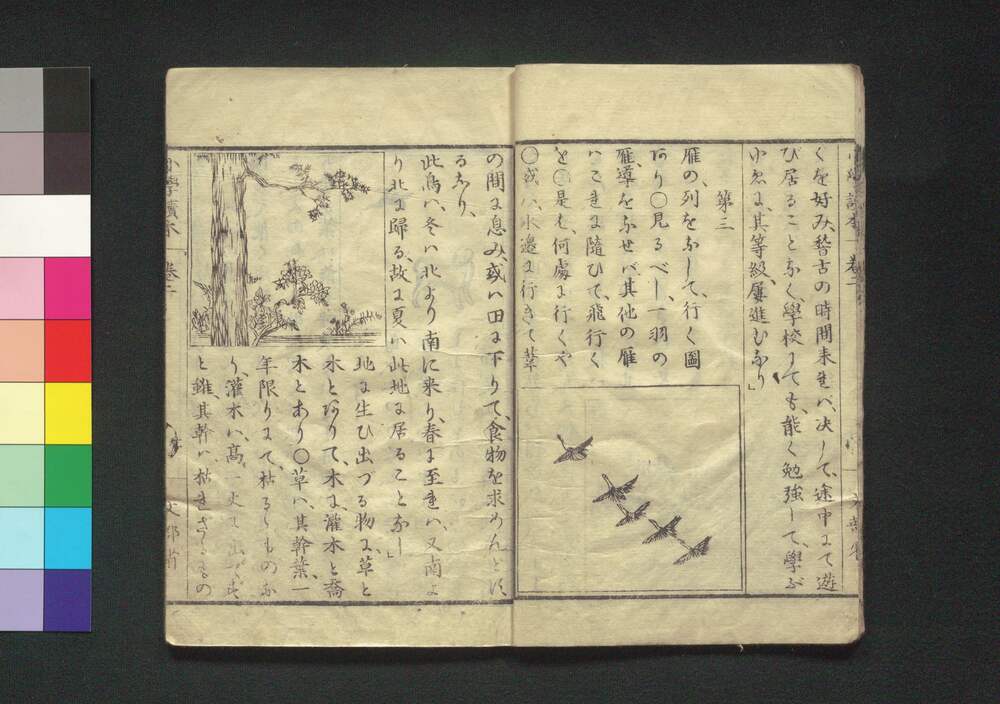 くを好み、稽古の時間来れバ、决して、途中にて遊
び居ることなく、學校にても、能く勉強して、學ぶ
ゆゑに、其等級屢進むなり」
第三
雁の、列をなして、行く圖
あり○見るべし、一羽の
雁、導をなせバ、其他の雁
ハこれに隨ひて、飛行く
を○是も、何處に行くや
○或ハ、水邊に行きて、草
の間に息み、或ハ田に下りて、食物を求めんとす
るなり、
此鳥ハ、冬ハ北より南に来り、春に至れハ、又南よ
り北に歸る、故に夏ハ此地に居ることなし」
地に生ひ出づる物に、草と
木とありて、木に灌木と喬
木とあり○草ハ、其幹葉、一
年限りにて、枯るゝものな
り、灌木ハ、高一丈に出です、
と雖、其幹ハ枯れざるもの
小學讀本
卷二
文部省